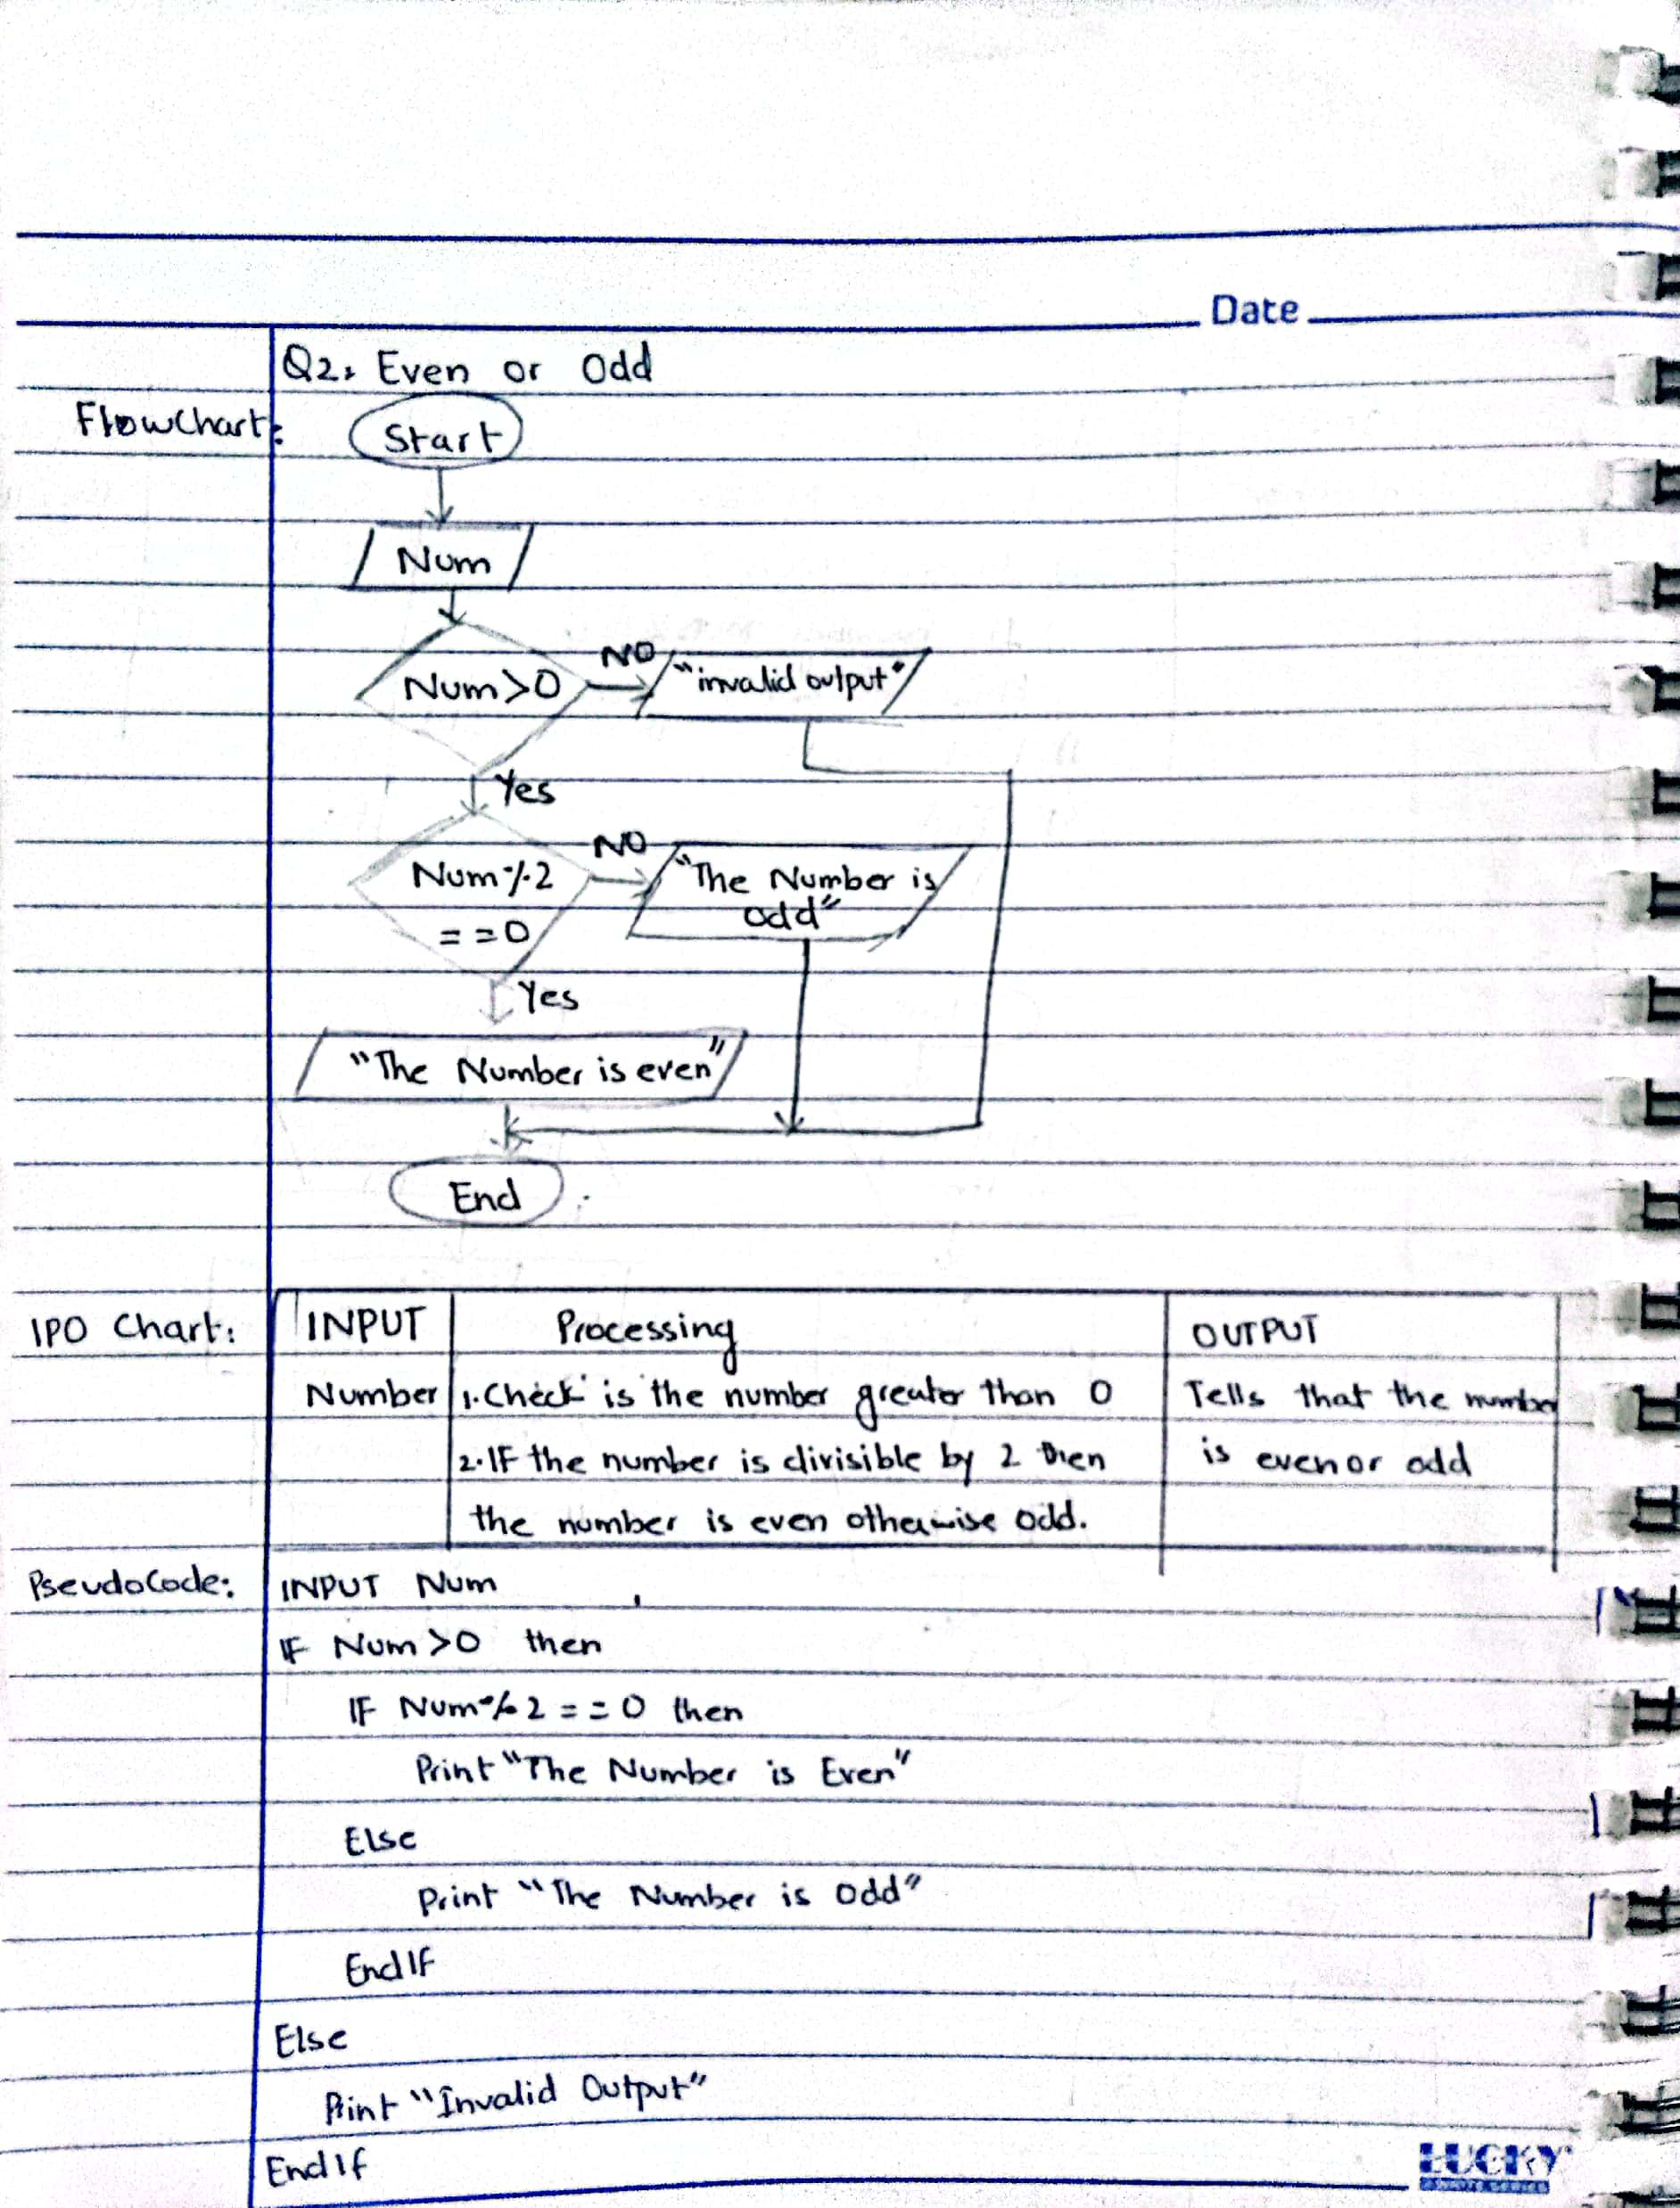 Date
Q2. Even or Odd
FlowChart:
Start
Num
Num>0
NO
"invalid output"
Yes
Num%2
==0
NO
"The Number is
odd"
Yes
"The Number is even"
End
IPO Chart:
INPUT
Processing
OUTPUT
Number
1. Check is the number greater than 0
Tells that the number
2. IF the number is divisible by 2 then
is even or odd
the number is even otherwise odd.
PseudoCode:
INPUT Num
IF Num>0 then
IF Num%2==0 then
Print "The Number is Even"
Else
Print "The Number is Odd"
EndIF
Else
Print "Invalid Output"
EndIf
LUCKY